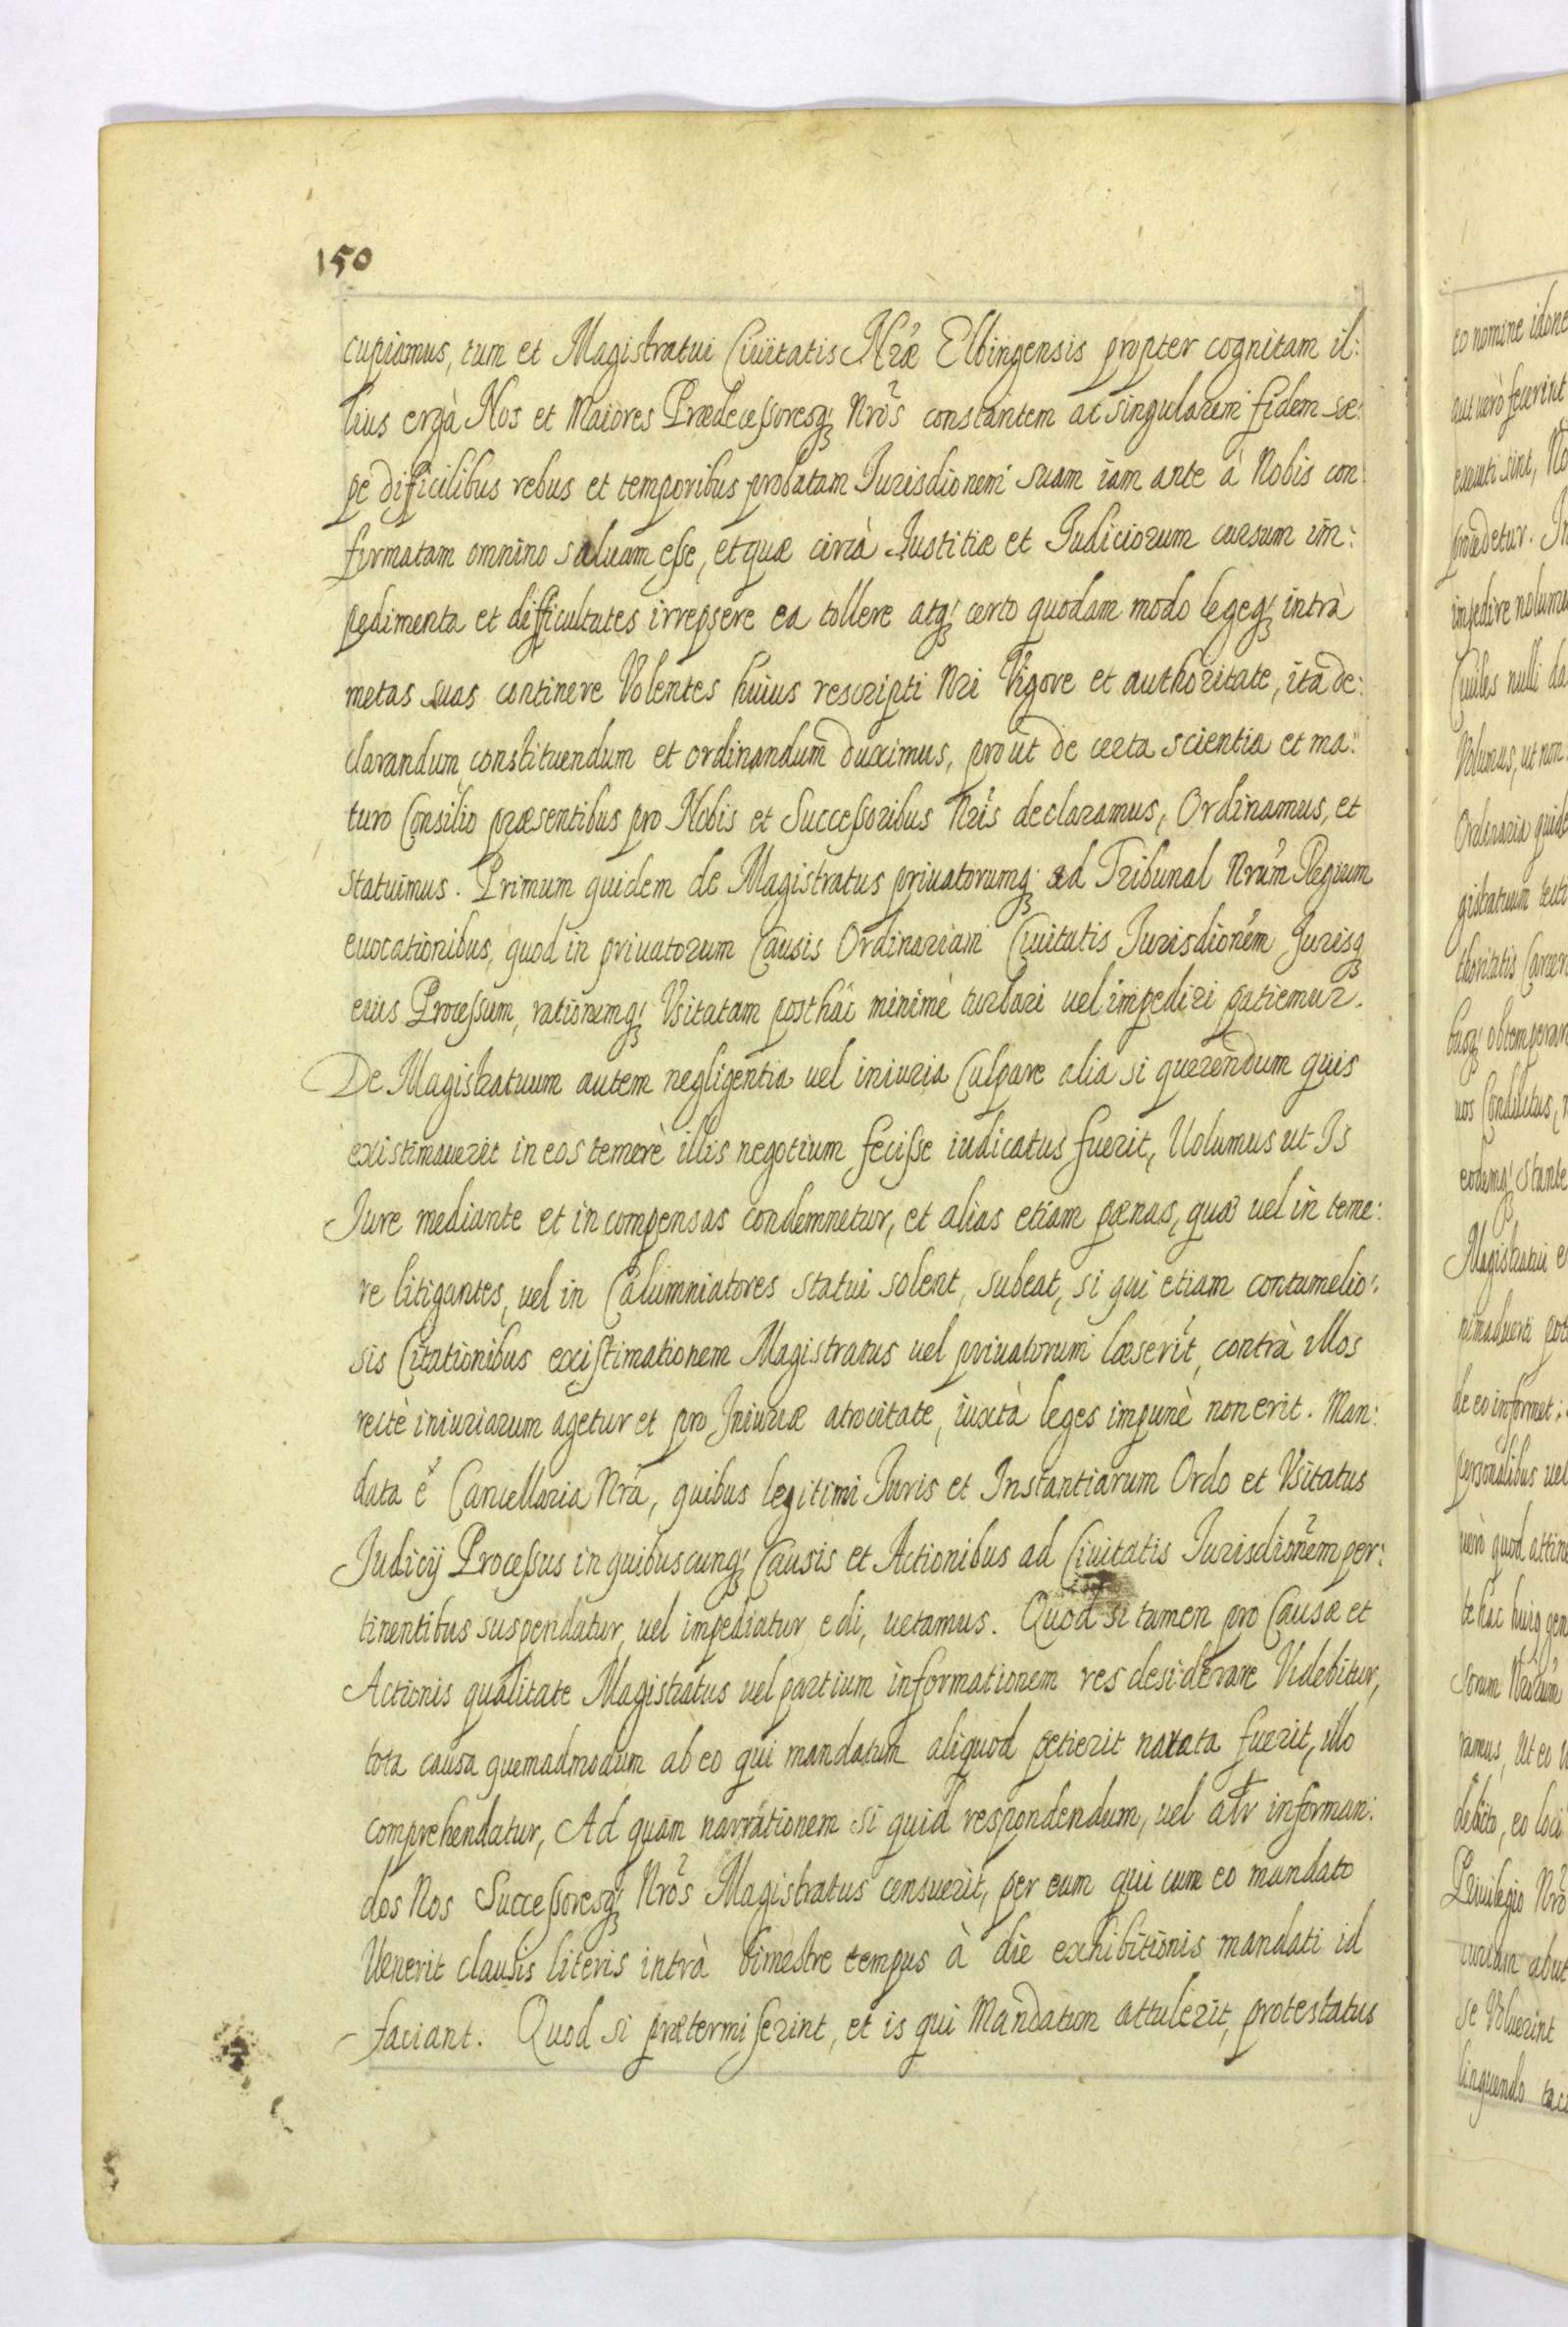 150
cupiamus, tum et Magistratui Ciuitatis Nr̃æ Elbingensis propter cognitam il:
lius ergà Nos et Maiores Prædecessoresq3 Nrõs constantem ac singularem fidem sæ:
pe dificilibus rebus et temporibus probatam Jurisdionem̃ suam iam ante à Nobis con
firmatam omnino saluam esse, et quæ circà Justitiæ et Judiciorum cursum im:
pedimenta et difficultates irrepsere ea tollere atq3 certo quodam modo legeq3 intrà
metas suas continere Volentes huius rescripti Nri Vigore et authoritate, ita de:
clarandum, constituendum et ordinandum duximus, prout de certa scientia et ma:
turo Consilio præsentibus pro Nobis et Successoribus Nrĩs declaramus, Ordinamus, et
statuimus. Primum quidem de Magistratus priuatorumq3 ad Tribunal Nrũm Regium
euocationibus, quod in priuatorum Causis Ordinariam Ciuitatis Jurisdionẽm Jurisq3
eius Processum, rationemq3 Vsitatam posthac minimè turbari uel impediri patiemur.
De Magistratuum autem negligentia uel iniuria Culpare alia si querendum quis
existimauerit in eos temerè illis negotium fecisse iudicatus fuerit, Uolumus ut Is
Jure mediante et in compensas condemnetur, et alias etiam pœnas, quæ uel in teme:
re litigantes, uel in Calumniatores statui solent, subeat, si qui etiam contumelio:
sis Citationibus existimationem Magistratus uel priuatorum læserĩt, contrà illos
rectè iniuriarum agetur et pro Iniuriæ atrocitate, iuxtà leges impunè non erit. Man:
data è Cancellaria Nrã, quibus legitimi Juris et Instantiarum Ordo et Vsitatus
Judicij Processus in quibuscunq3 Causis et Actionibus ad Ciuitatis Jurisdionẽm per:
tinentibus suspendatur, uel impediatur edi, uetamus. Quod si tamen pro Causæ et
Actionis qualitate Magistratus uel partium informationem res desiderare Videbitur,
tota causa quemadmodum ab eo qui mandatum aliquod petierit narata fuerit, illo
comprehendatur, Ad quam narrationem si quid respondendum, uel alr informan:
dos Nos Successoresq3 Nrõs Magistratus censuerit, per eum qui cum eo mandato
Uenerit clausis literis intrà bimestre tempus à die exhibitionis mandati id
faciant. Quod si prætermiserint, et is qui Mandatum attulerit, protestatus